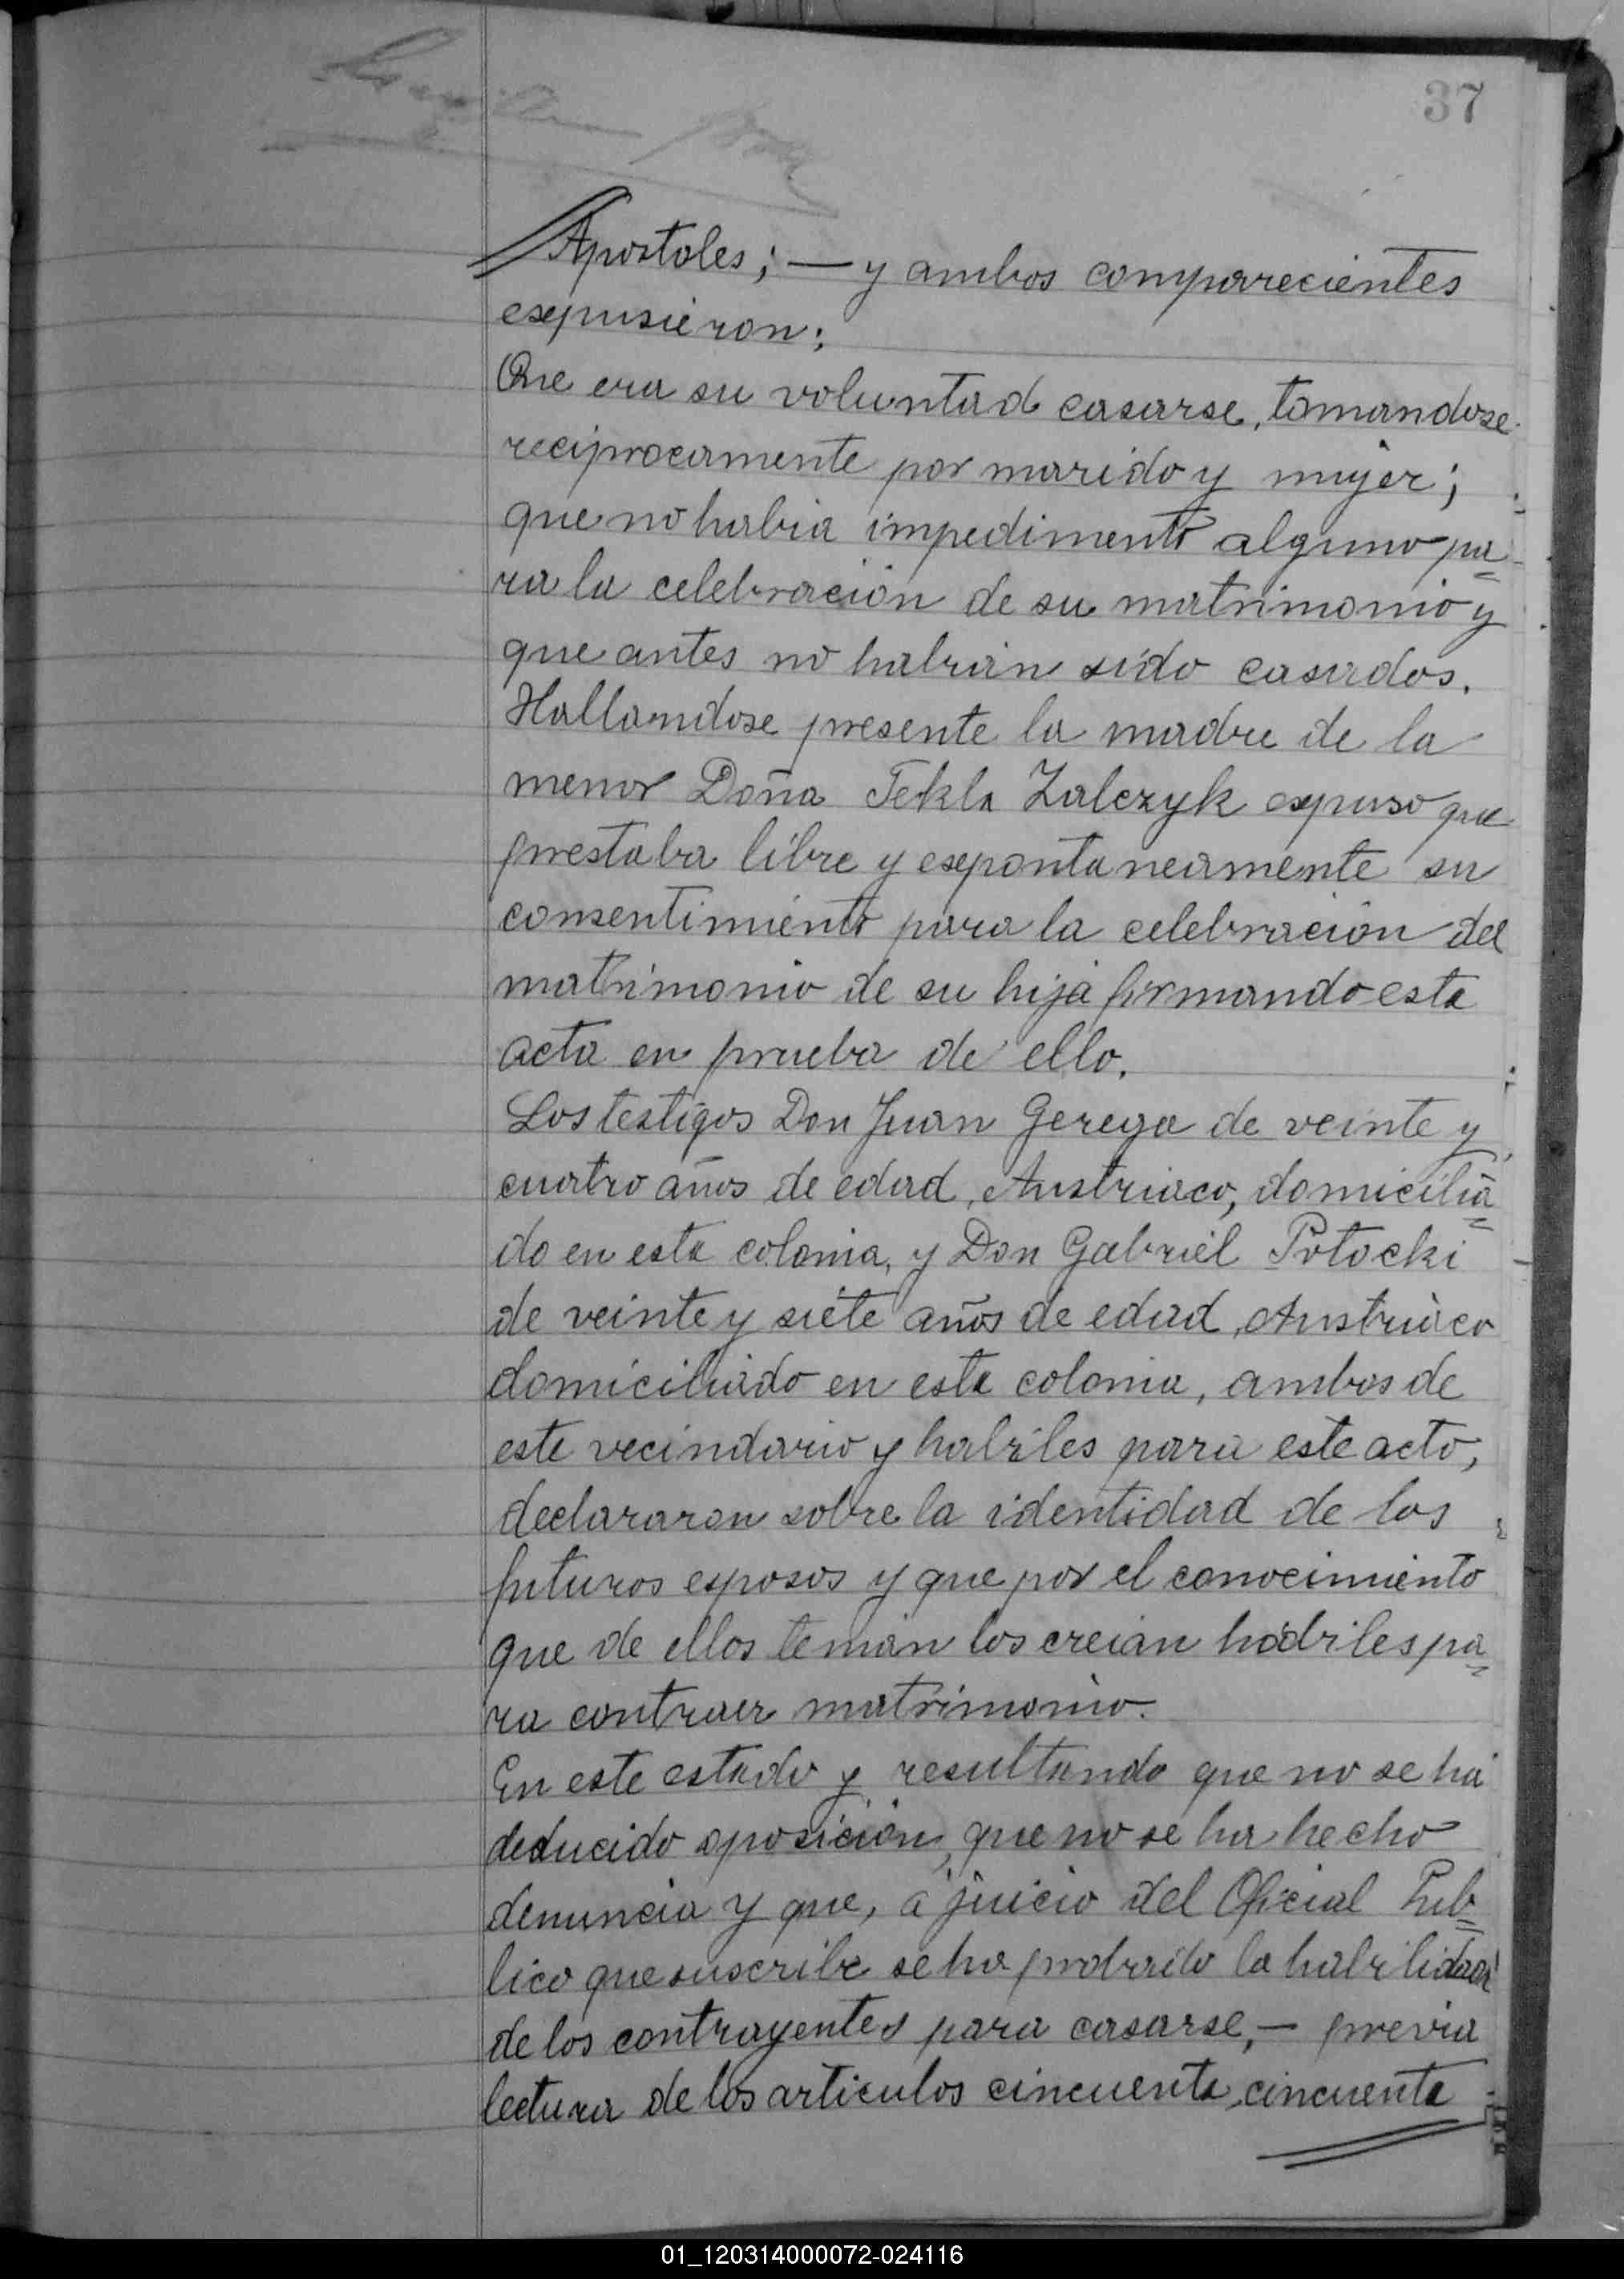 37
Apostoles; — y ambos comparecientes
esepusieron:
Que era su voluntad casarse, tomandose
reciprocamente por marido y mujer;
que no habia impedimento alguno pa=
ra la celebracion de su matrimonio y
que antes no habian sido casados.
Hallandose presente la madre de la
menor Doña Tekla Zalczyk espuso que
prestaba libre y esepontaneamente su
consentimiento para la celebracion del
matrimonio de su hija firmando esta
acta en prueba de ello.
Los testigos Don Juan Gerega de veinte y
cuatro años de edad, Austriaco, domicilia=
do en esta colonia, y Don Gabriel Potocki
de veinte y siete años de edad, Austriaco
domiciliado en esta colonia, ambos de
este vecindario y habiles para este acto,
declararon sobre la identidad de los
futuros esposos y que por el conocimiento
que de ellos tenian los creian habiles pa=
ra contraer matrimonio.
En este estado y resultando que no se ha
deducido oposicion, que no se ha hecho
denuncia y que, a juicio del Oficial Pub=
lico que suscribe se ha probado la habilidad
de los contrayentes para casarse, — previa
lectura de los articulos cincuenta, cincuenta
01_120314000072-024116